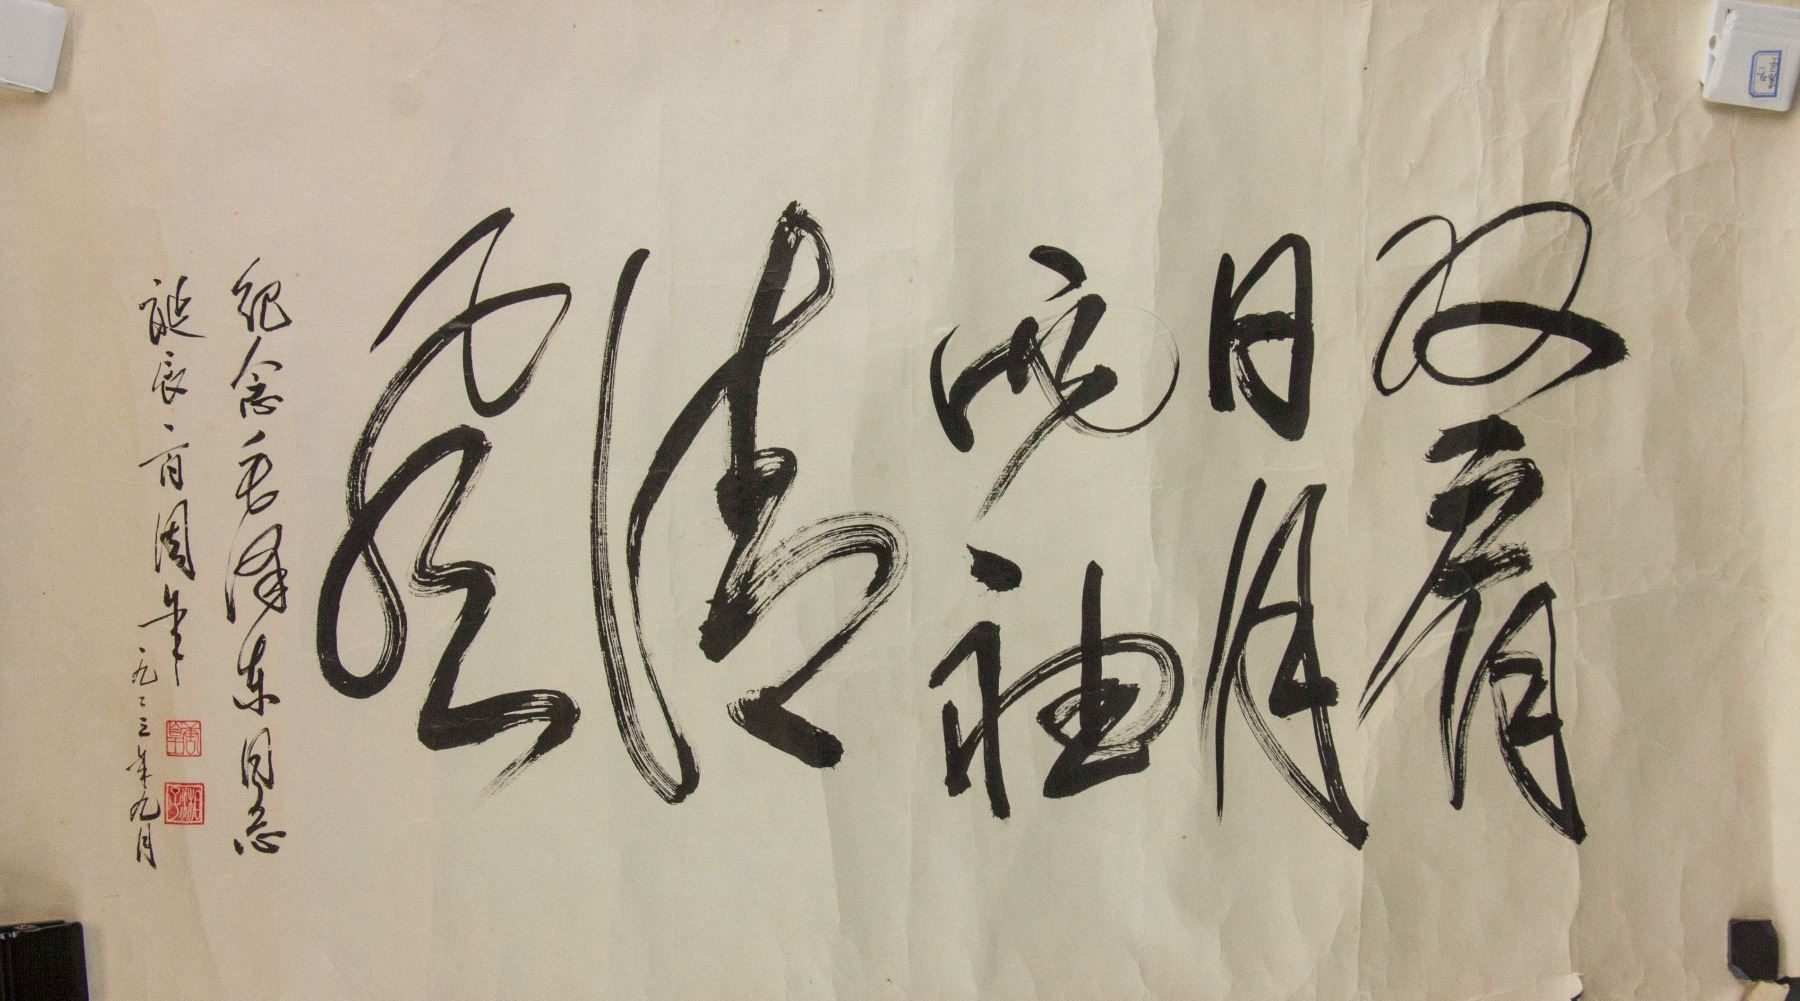 双肩
日月
两袖
清风
纪念毛泽东同志
诞辰一百周年
一九九三年九月